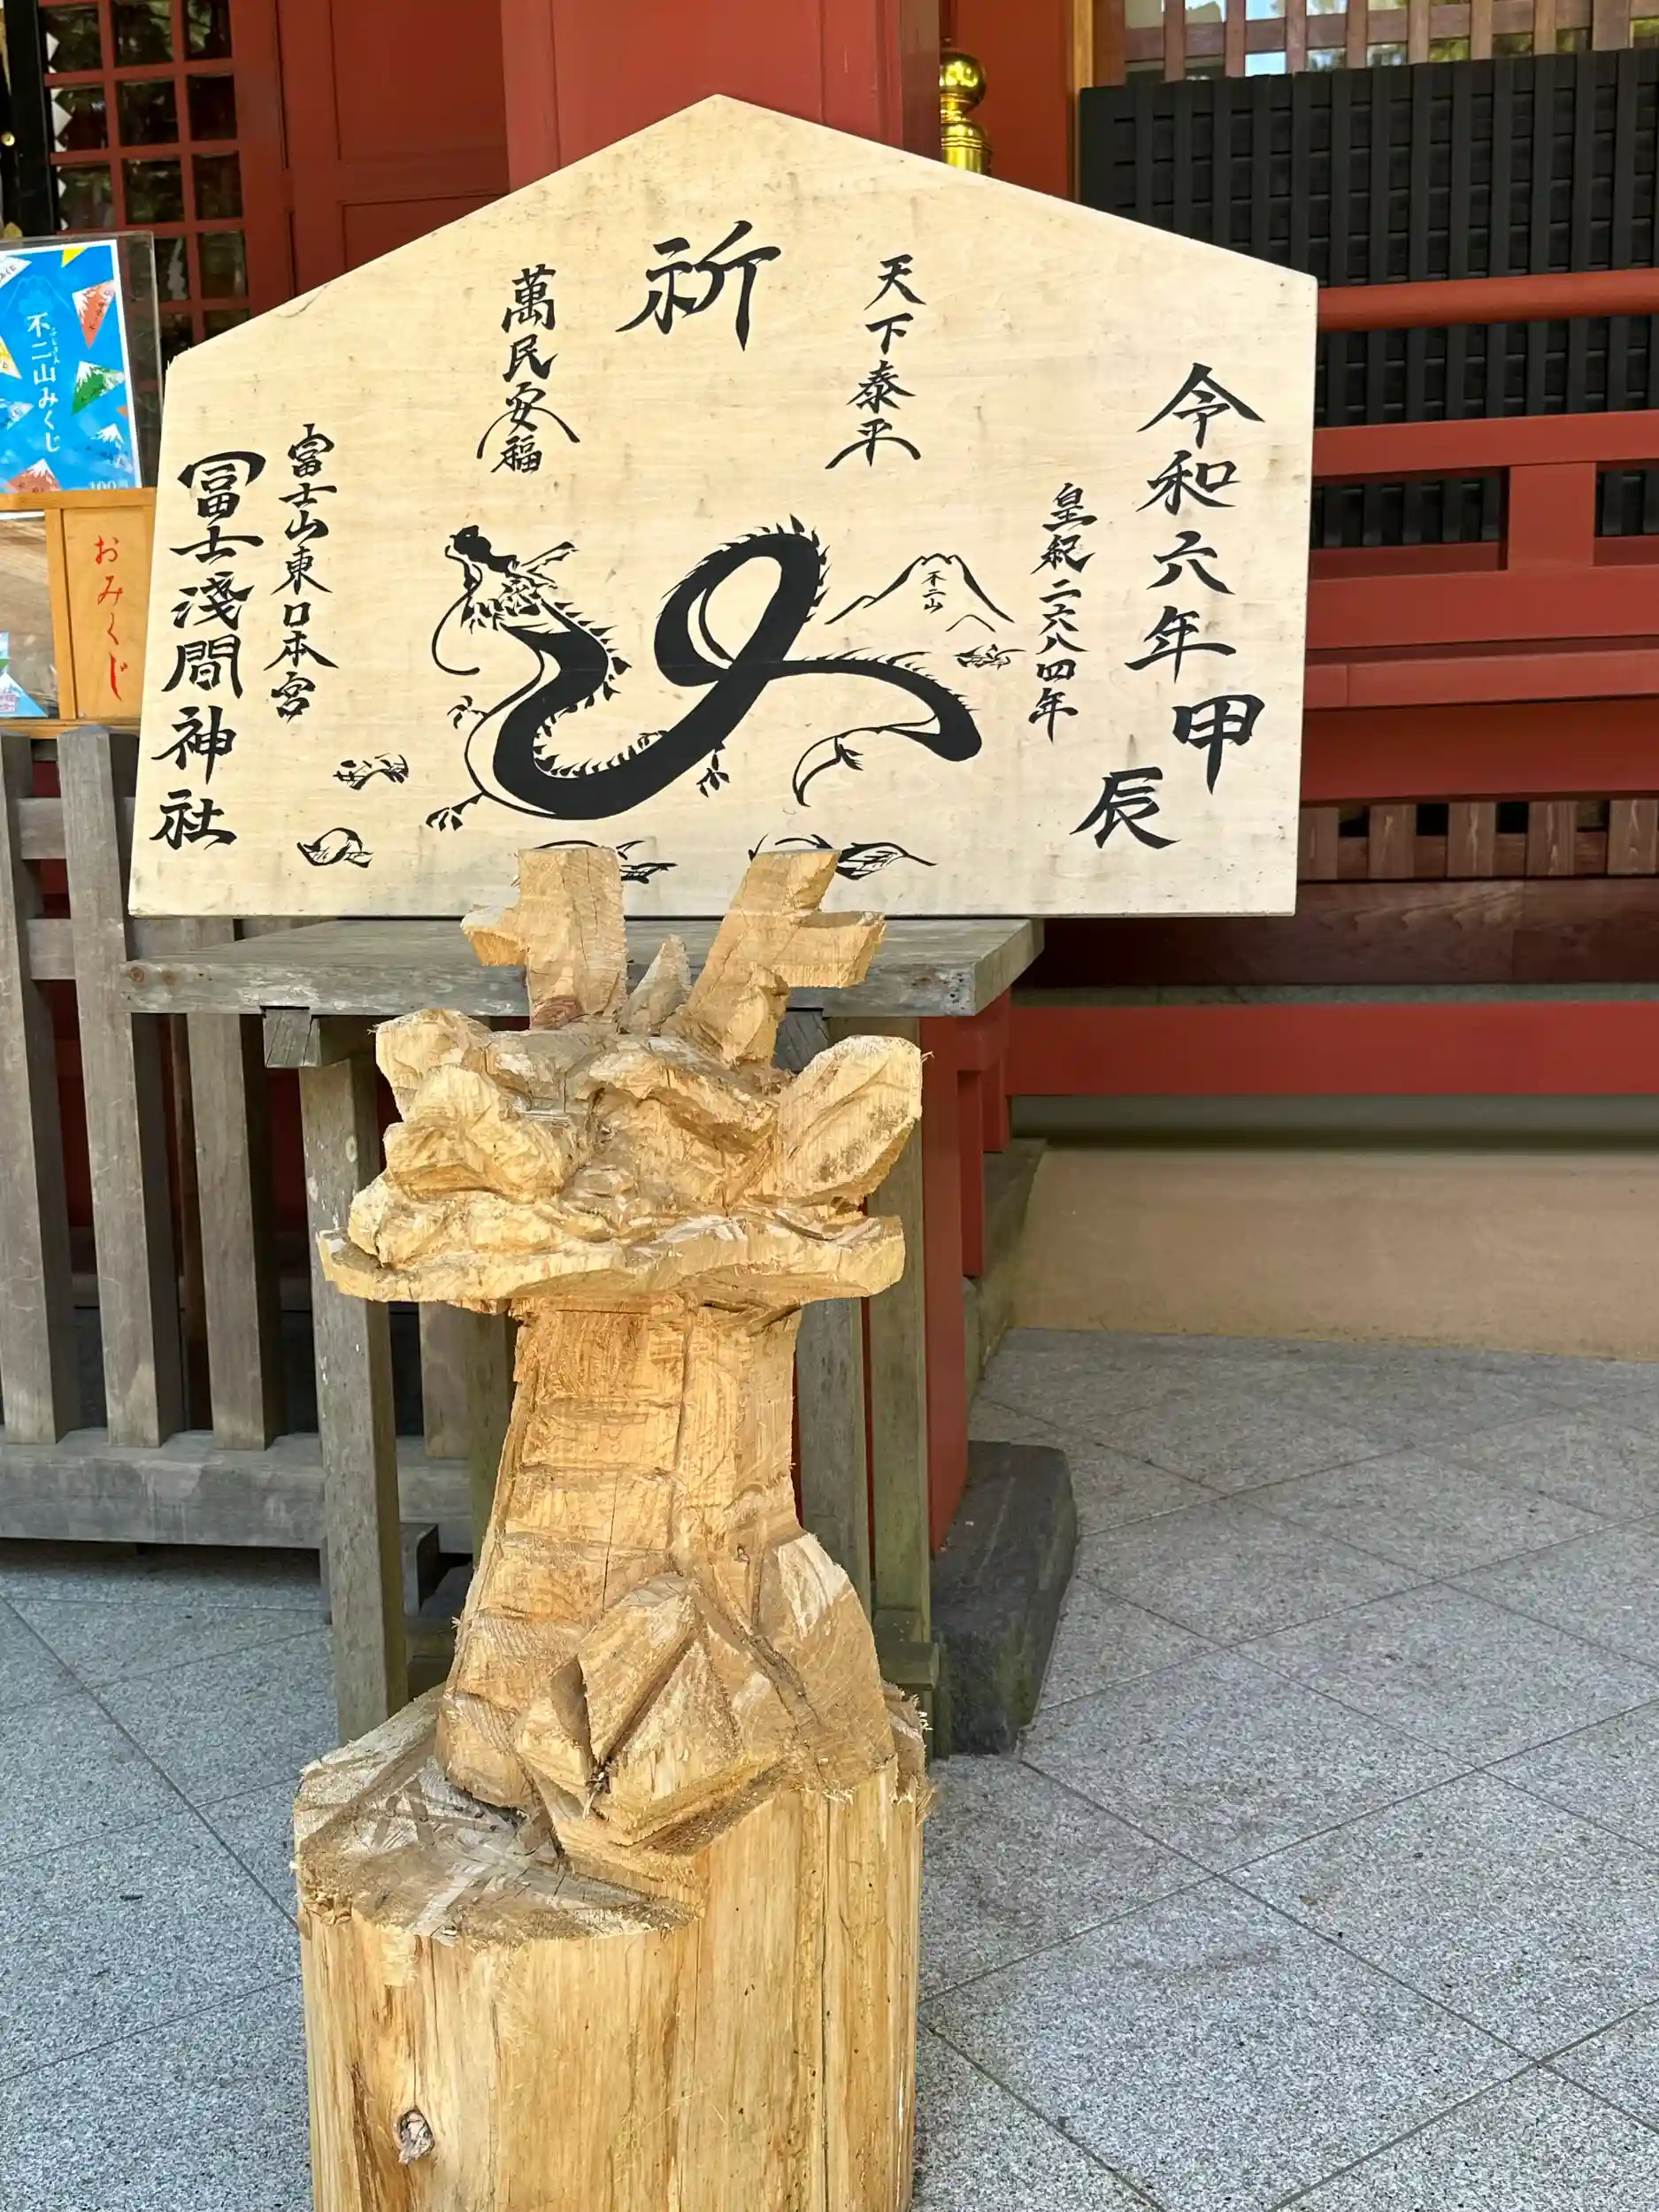 令和六年甲辰
皇紀二六八四年
天下泰平
祈
萬民安福
不二山
富士山東口本宮
冨士浅間神社
不二山みくじ
おみくじ